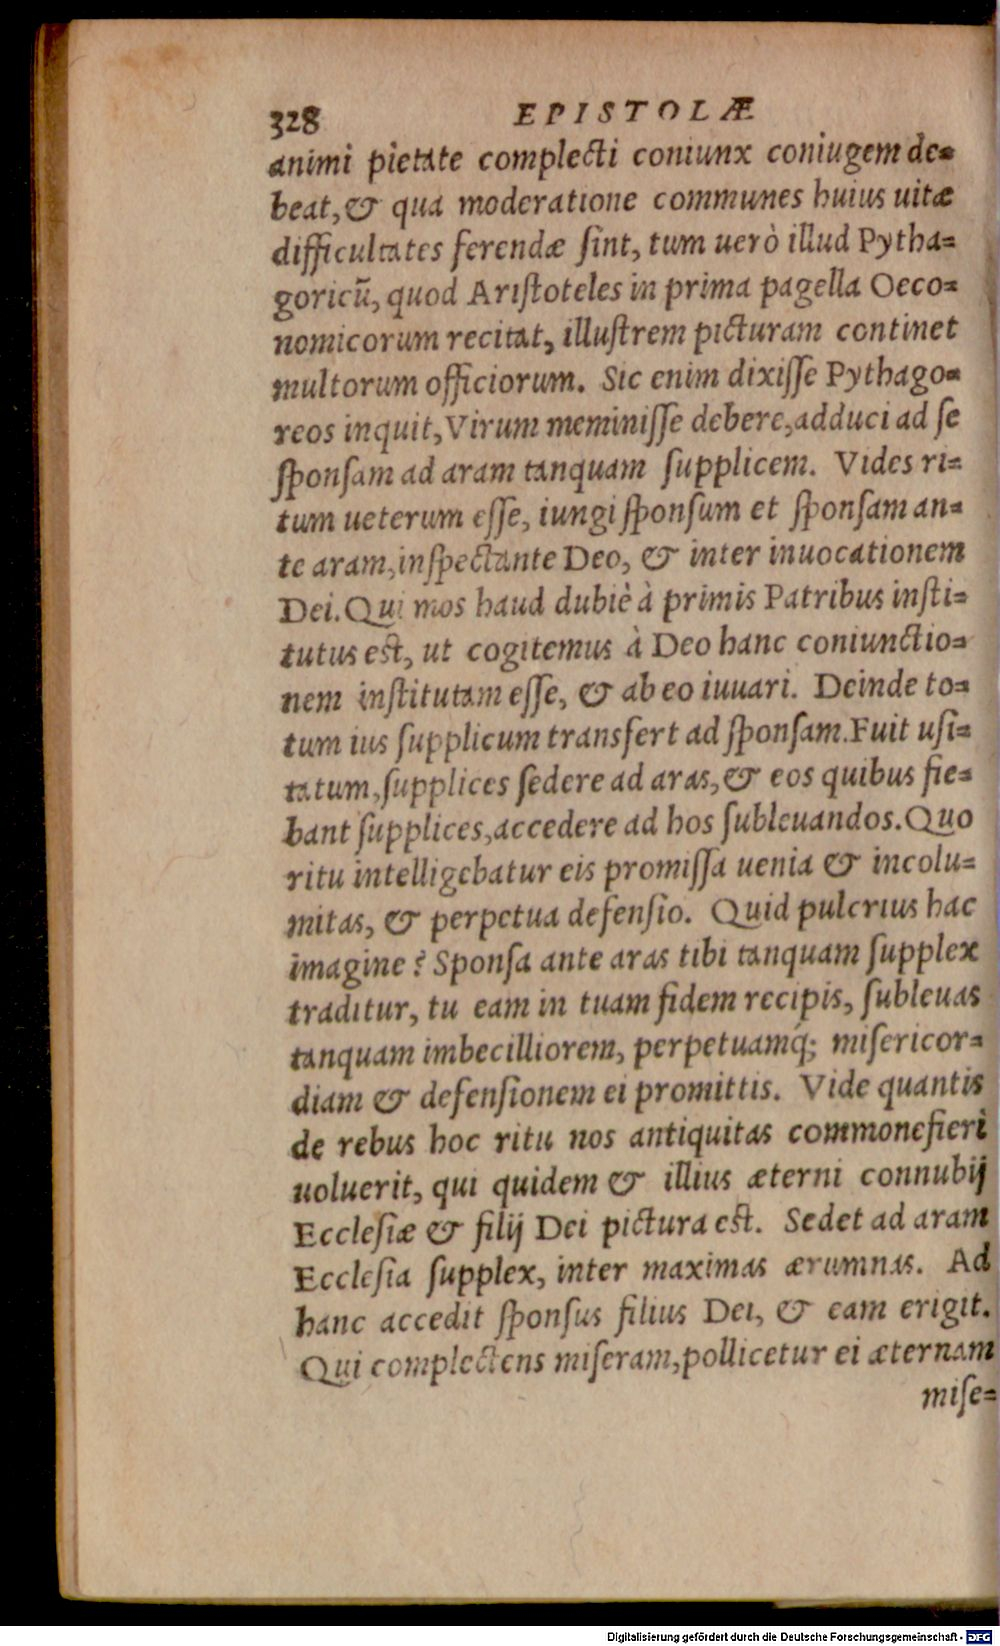 328 EPISTOLÆ
animi pietate complecti coniunx coniugem de=
beat, & qua moderatione communes huius uitæ
difficultates ferendæ ſint, tum uerò illud Pytha=
goricũ, quod Ariſtoteles in prima pagella Oeco=
nomicorum recitat, illuſtrem picturam continet
multorum officiorum. Sic enim dixiſſe Pythago=
reos inquit, Virum meminiſſe debere, adduci ad ſe
ſponſam ad aram tanquam ſupplicem. Vides ri=
tum ueterum eſſe, iungi ſponſum et ſponſam an=
te aram, inſpectante Deo, & inter inuocationem
Dei. Qui mos haud dubiè à primis Patribus inſti=
tutus eſt, ut cogitemus à Deo hanc coniunctio=
nem inſtitutam eſſe, & ab eo iuuari. Deinde to=
tum ius ſupplicum transfert ad ſponſam. Fuit uſi=
tatum, ſupplices ſedere ad aras, & eos quibus fie=
bant ſupplices, accedere ad hos ſubleuandos. Quo
ritu intelligebatur eis promiſſa uenia & incolu=
mitas, & perpetua defenſio. Quid pulcrius hac
imagine? Sponſa ante aras tibi tanquam ſupplex
traditur, tu eam in tuam fidem recipis, ſubleuas
tanquam imbecilliorem, perpetuamq́; miſericor=
diam & defenſionem ei promittis. Vide quantis
de rebus hoc ritu nos antiquitas commonefieri
uoluerit, qui quidem & illius æterni connubij
Eccleſiæ & filij Dei pictura eſt. Sedet ad aram
Eccleſia ſupplex, inter maximas ærumnas. Ad
hanc accedit ſponſus filius Dei, & eam erigit.
Qui complectens miſeram, pollicetur ei æternam
miſe=
Digitalisierung gefördert durch die Deutsche Forschungsgemeinschaft - DFG